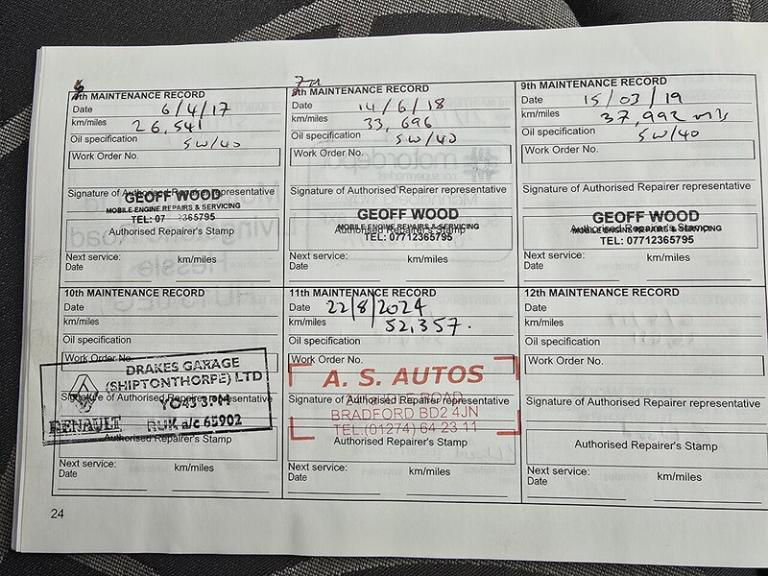 7th MAINTENANCE RECORD
Date 6/4/17
km/miles 26,541
Oil specification 5W/40
Work Order No.
Signature of Authorised Repairer representative
GEOFF WOOD
MOBILE ENGINE REPAIRS & SERVICING
TEL: 07 2365795
Authorised Repairer's Stamp
Next service:
Date
km/miles
7th
8th MAINTENANCE RECORD
Date 14/6/18
km/miles 33,696
Oil specification 5W/40
Work Order No.
Signature of Authorised Repairer representative
GEOFF WOOD
MOBILE ENGINE REPAIRS & SERVICING
Authorised Repairer's Stamp
TEL: 07712365795
Next service:
Date
km/miles
9th MAINTENANCE RECORD
Date 15/03/19
km/miles 37,992 mls
Oil specification 5W/40
Work Order No.
Signature of Authorised Repairer representative
GEOFF WOOD
MOBILE ENGINE REPAIRS & SERVICING
Authorised Repairer's Stamp
TEL: 07712365795
Next service:
Date
km/miles
10th MAINTENANCE RECORD
Date
km/miles
Oil specification
Work Order No.
DRAKES GARAGE
(SHIPTONTHORPE) LTD
Signature of Authorised Repairer representative
YO43 3PM
RENAULT RUK a/c 65902
Authorised Repairer's Stamp
Next service:
Date
km/miles
11th MAINTENANCE RECORD
Date 22/8/2024
km/miles 52,357.
Oil specification
Work Order No.
A. S. AUTOS
Signature of Authorised Repairer representative
ROAD
BRADFORD BD2 4JN
TEL:(01274) 64 23 11
Authorised Repairer's Stamp
Next service:
Date
km/miles
12th MAINTENANCE RECORD
Date
km/miles
Oil specification
Work Order No.
Signature of Authorised Repairer representative
Authorised Repairer's Stamp
Next service:
Date
km/miles
24